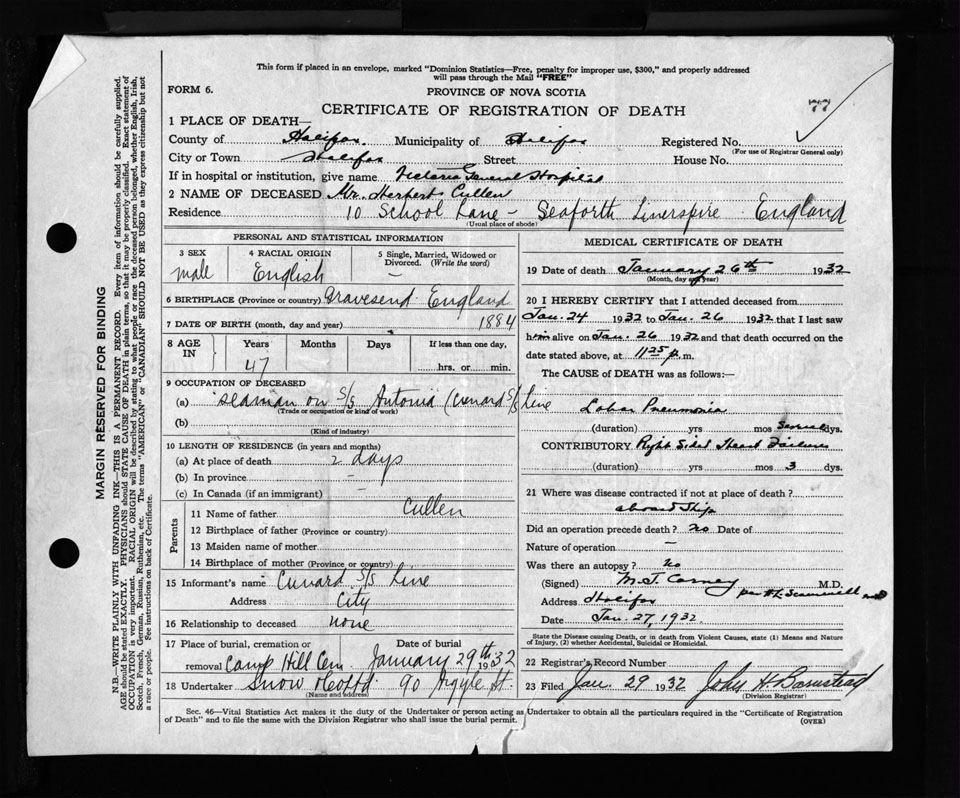 This form if placed in an envelope, marked "Dominion Statistics—Free, penalty for improper use, $300," and properly addressed
will pass through the Mail "FREE"
FORM 6.
PROVINCE OF NOVA SCOTIA
77
CERTIFICATE OF REGISTRATION OF DEATH
1 PLACE OF DEATH—
County of Halifax Municipality of Halifax Registered No.
(For use of Registrar General only)
City or Town Halifax Street House No.
If in hospital or institution, give name Victoria General Hospital
2 NAME OF DECEASED Mr. Herbert Cullen
Residence 10 School Lane - Seaforth England
(Usual place of abode)
PERSONAL AND STATISTICAL INFORMATION
3 SEX 4 RACIAL ORIGIN 5 Single, Married, Widowed or
Divorced. (Write the word)
male English —
6 BIRTHPLACE (Province or country) Gravesend England
7 DATE OF BIRTH (month, day and year) 1884
8 AGE IN Years Months Days If less than one day,
47 hrs. or min.
9 OCCUPATION OF DECEASED
(a) Seaman on S/S Antonia (Cunard S/S Line
(Trade or occupation or kind of work)
(b)
(Kind of industry)
10 LENGTH OF RESIDENCE (in years and months)
(a) At place of death 2 days
(b) In province —
(c) In Canada (if an immigrant) —
Parents
11 Name of father Cullen
12 Birthplace of father (Province or country)
13 Maiden name of mother
14 Birthplace of mother (Province or country)
15 Informant's name Cunard S/S Line
Address City
16 Relationship to deceased none
17 Place of burial, cremation or Date of burial
removal Camp Hill Cem. January 29th 1932
18 Undertaker Snow & Co Ltd. 90 Argyle St.
(Name and address)
MEDICAL CERTIFICATE OF DEATH
19 Date of death January 26th 1932
(Month, day and year)
20 I HEREBY CERTIFY that I attended deceased from
Jan. 24 1932 to Jan. 26 1932 that I last saw
him alive on Jan. 26 1932 and that death occurred on the
date stated above, at 11 25 p. m.
The CAUSE of DEATH was as follows:—
Lobar Pneumonia
(duration) yrs mos Several dys.
CONTRIBUTORY Right Sided Heart Failure
(duration) yrs mos 3 dys.
21 Where was disease contracted if not at place of death ?
aboard Ship
Did an operation precede death ? no Date of
Nature of operation —
Was there an autopsy ? no
(Signed) M. J. Carney M.D.
Address Halifax
Date Jan. 27, 1932.
State the Disease causing Death, or in death from Violent Causes, state (1) Means and Nature
of Injury, (2) whether Accidental, Suicidal or Homicidal.
22 Registrar's Record Number
23 Filed Jan. 29 1932 John H Barnstead
(Division Registrar)
Sec. 46—Vital Statistics Act makes it the duty of the Undertaker or person acting as Undertaker to obtain all the particulars required in the "Certificate of Registration
of Death" and to file the same with the Division Registrar who shall issue the burial permit.
(OVER)
MARGIN RESERVED FOR BINDING
N.B.—WRITE PLAINLY WITH UNFADING INK—THIS IS A PERMANENT RECORD. Every item of information should be carefully supplied.
AGE should be stated EXACTLY. PHYSICIANS should STATE CAUSE OF DEATH in plain terms, so that it may be properly classified. Exact statement of
OCCUPATION is very important. RACIAL ORIGIN will be described by stating to what people or race the deceased person belonged, whether English, Irish,
Scotch, French, German, Russian, Ruthenian, etc. The terms "AMERICAN" or "CANADIAN" SHOULD NOT BE USED as they express citizenship but not
a race or people. See instructions on back of Certificate.